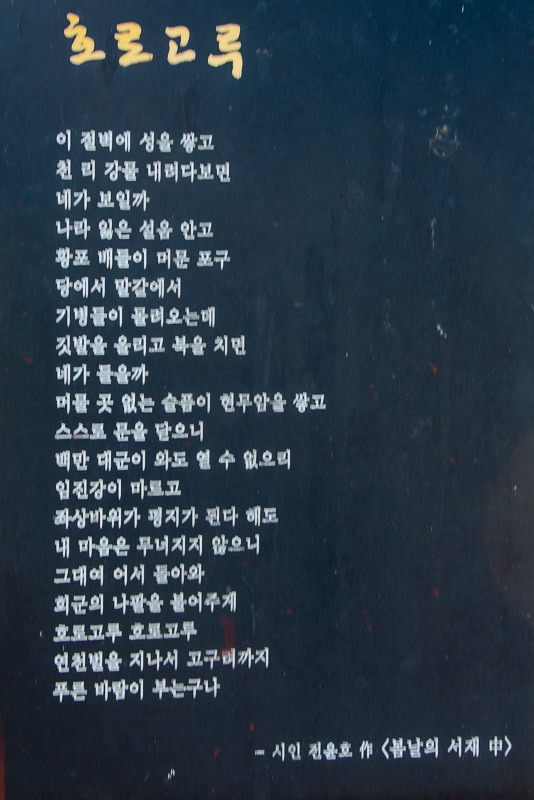 호로고루
이 절벽에 성을 쌓고
천 리 강물 내려다보면
네가 보일까
나라 잃은 설움 안고
황포 배들이 머문 포구
당에서 말갈에서
기병들이 몰려오는데
깃발을 올리고 북을 치면
네가 들을까
머물 곳 없는 슬픔이 현무암을 쌓고
스스로 문을 닫으니
백만 대군이 와도 열 수 없으리
임진강이 마르고
좌상바위가 평지가 된다 해도
내 마음은 무너지지 않으니
그대여 어서 돌아와
회군의 나팔을 불어주게
호로고루 호로고루
연천벌을 지나서 고구려까지
푸른 바람이 부는구나
- 시인 전윤호 作 〈봄날의 서재 中〉